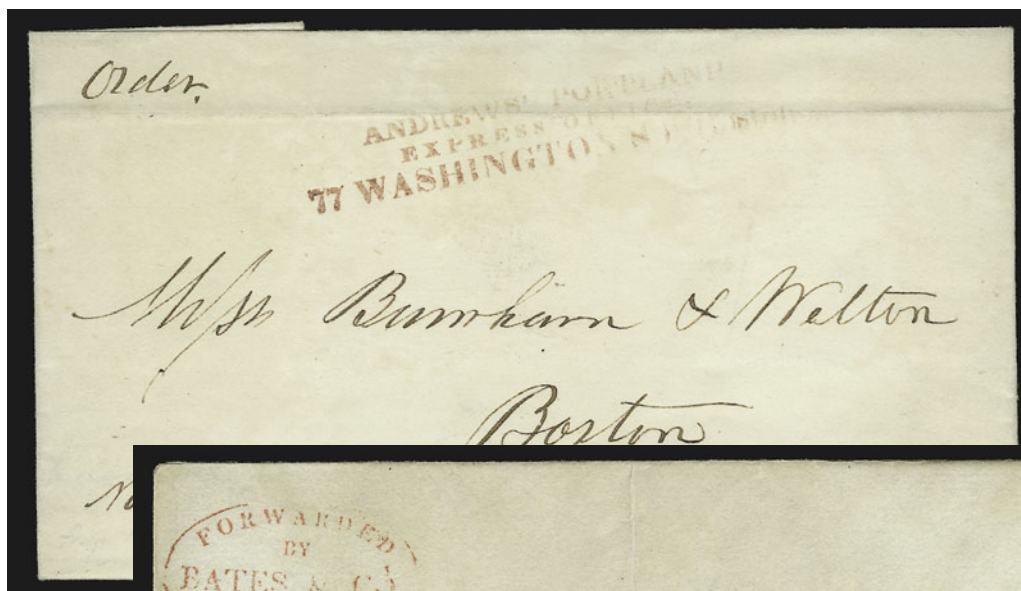 Order.
ANDREWS' PORTLAND
EXPRESS OFFICE
77 WASHINGTON ST. Boston
Mess Burnham & Welton
Boston
No
FORWARDED
BY
EATES & Co